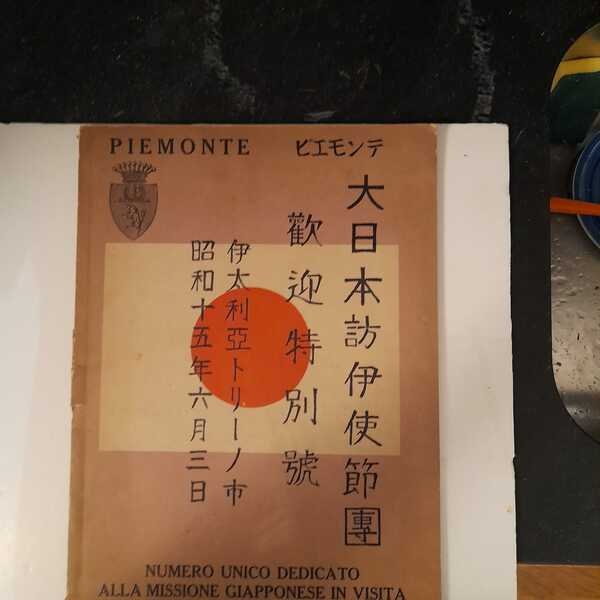 PIEMONTE ピエモンテ
大日本訪伊使節團
歡迎特別號
伊太利亞トリーノ市
昭和十五年六月三日
NUMERO UNICO DEDICATO
ALLA MISSIONE GIAPPONESE IN VISITA